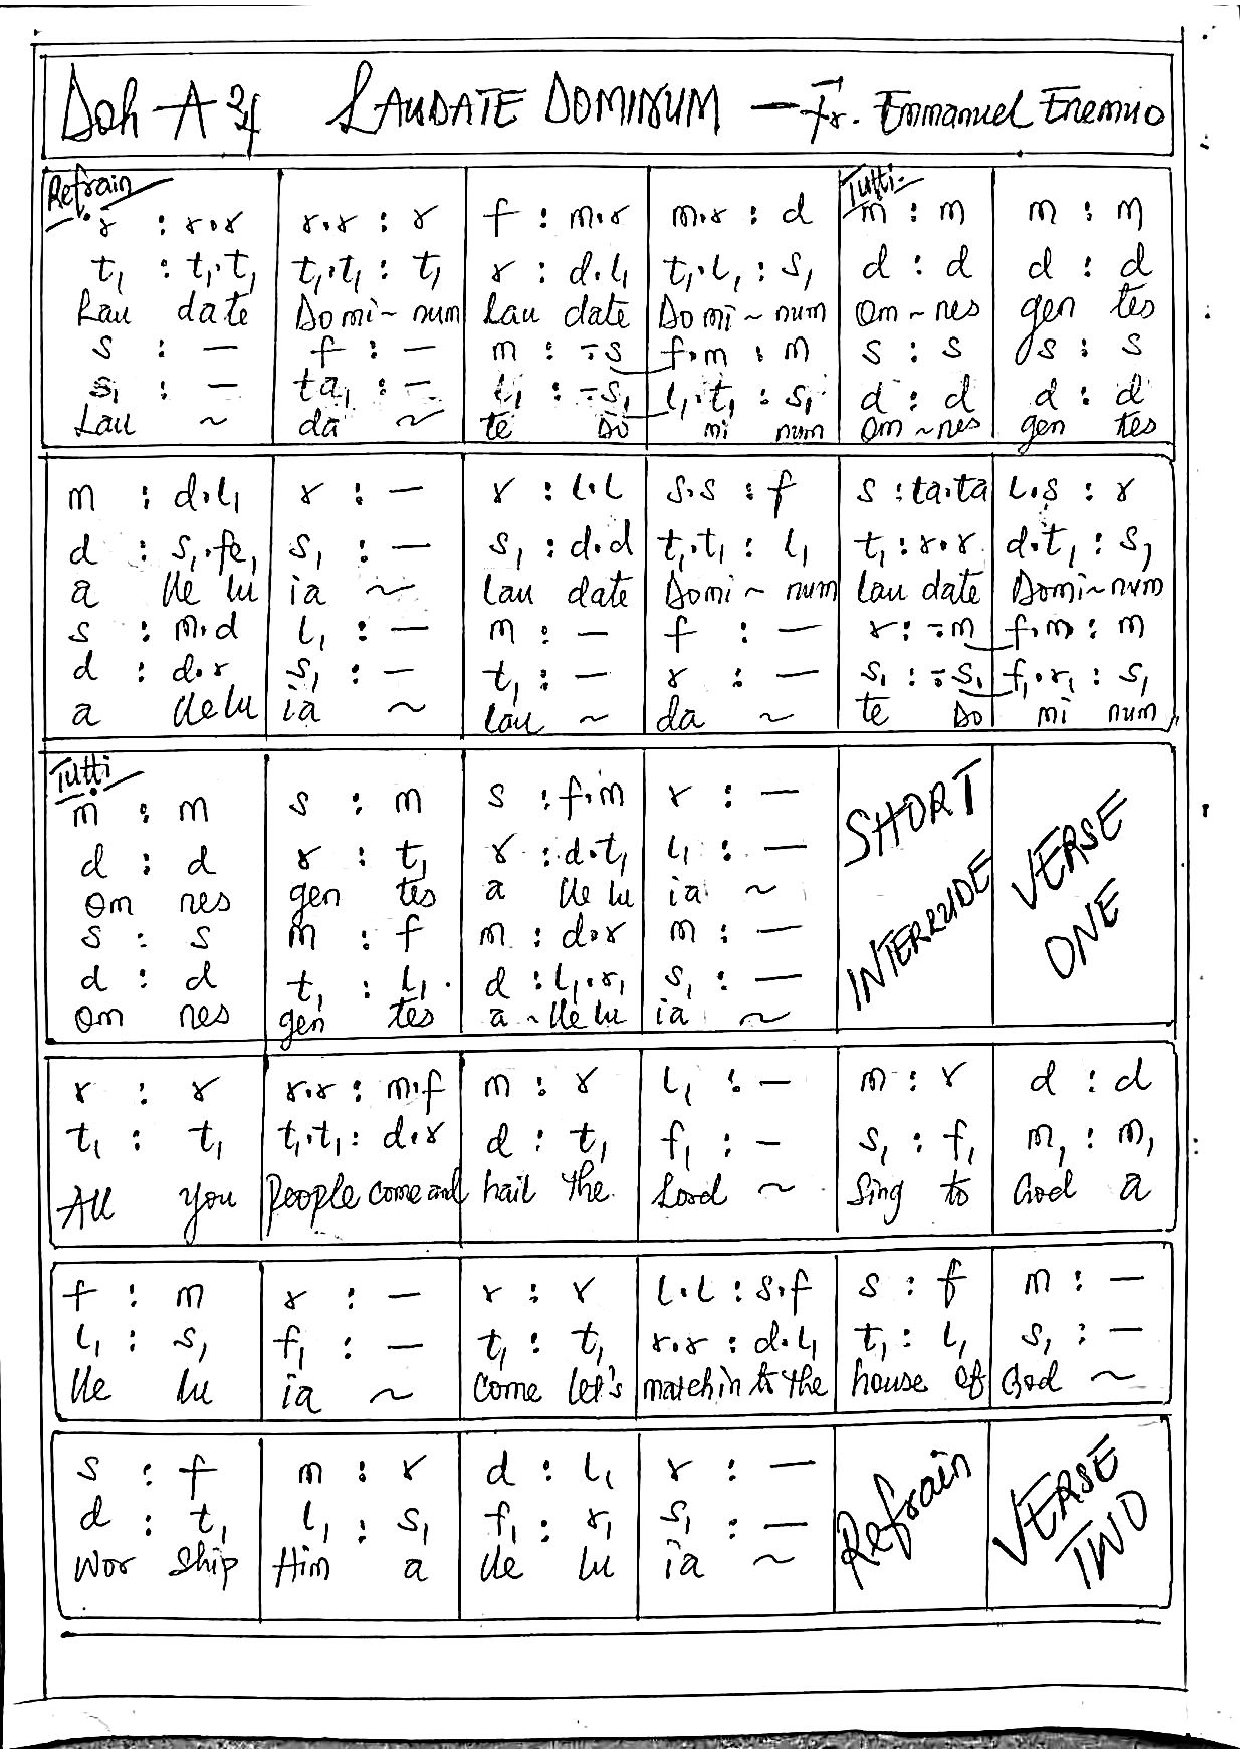 Doh-A ¾ LAUDATE DOMINUM — Fr. Emmanuel Enemuo
Refrain Tutti
r : r.r | r.r : r | f : m.r | m.r : d | m : m | m : m
t₁ : t₁.t₁ | t₁.t₁ : t₁ | r : d.l₁ | t₁.l₁ : s₁ | d : d | d : d
Lau date | Domi~num | Lau date | Domi~num | Om~nes | gen tes
s : — | f : — | m : -.s | f.m : m | s : s | s : s
s₁ : — | ta₁ : — | l₁ : -.s₁ | l₁.t₁ : s₁ | d : d | d : d
Lau ~ | da ~ | te Do | mi num | Om~nes | gen tes
m : d.l₁ | r : — | r : l.l | s.s : f | s : ta.ta | l.s : r
d : s₁.fe₁ | s₁ : — | s₁ : d.d | t₁.t₁ : l₁ | t₁ : r.r | d.t₁ : s₁
a lle lu | ia ~ | Lau date | Domi~num | Lau date | Domi~num
s : m.d | l₁ : — | m : — | f : — | r : -.m | f.m : m
d : d.r | s₁ : — | t₁ : — | r : — | s₁ : -.s₁ | f₁.r₁ : s₁
a llelu | ia ~ | Lau ~ | da ~ | te Do | mi num
Tutti
m : m | s : m | s : f.m | r : — | SHORT INTERLUDE | VERSE ONE
d : d | r : t₁ | r : d.t₁ | l₁ : —
Om nes | gen tes | a lle lu | ia ~
s : s | m : f | m : d.r | m : —
d : d | t₁ : l₁ | d : l₁.r₁ | s₁ : —
Om nes | gen tes | a~lle lu | ia ~
r : r | r.r : m.f | m : r | l₁ : — | m : r | d : d
t₁ : t₁ | t₁.t₁ : d.r | d : t₁ | f₁ : - | s₁ : f₁ | m₁ : m₁
All you | people come and | hail the | Lord ~ | Sing to | God a
f : m | r : — | r : r | l.l : s.f | s : f | m : —
l₁ : s₁ | f₁ : — | t₁ : t₁ | r.r : d.l₁ | t₁ : l₁ | s₁ : —
lle lu | ia ~ | Come let's | match in to the | house of | God ~
s : f | m : r | d : l₁ | r : — | Refrain | VERSE TWO
d : t₁ | l₁ : s₁ | f₁ : r₁ | s₁ : —
Wor ship | Him a | lle lu | ia ~